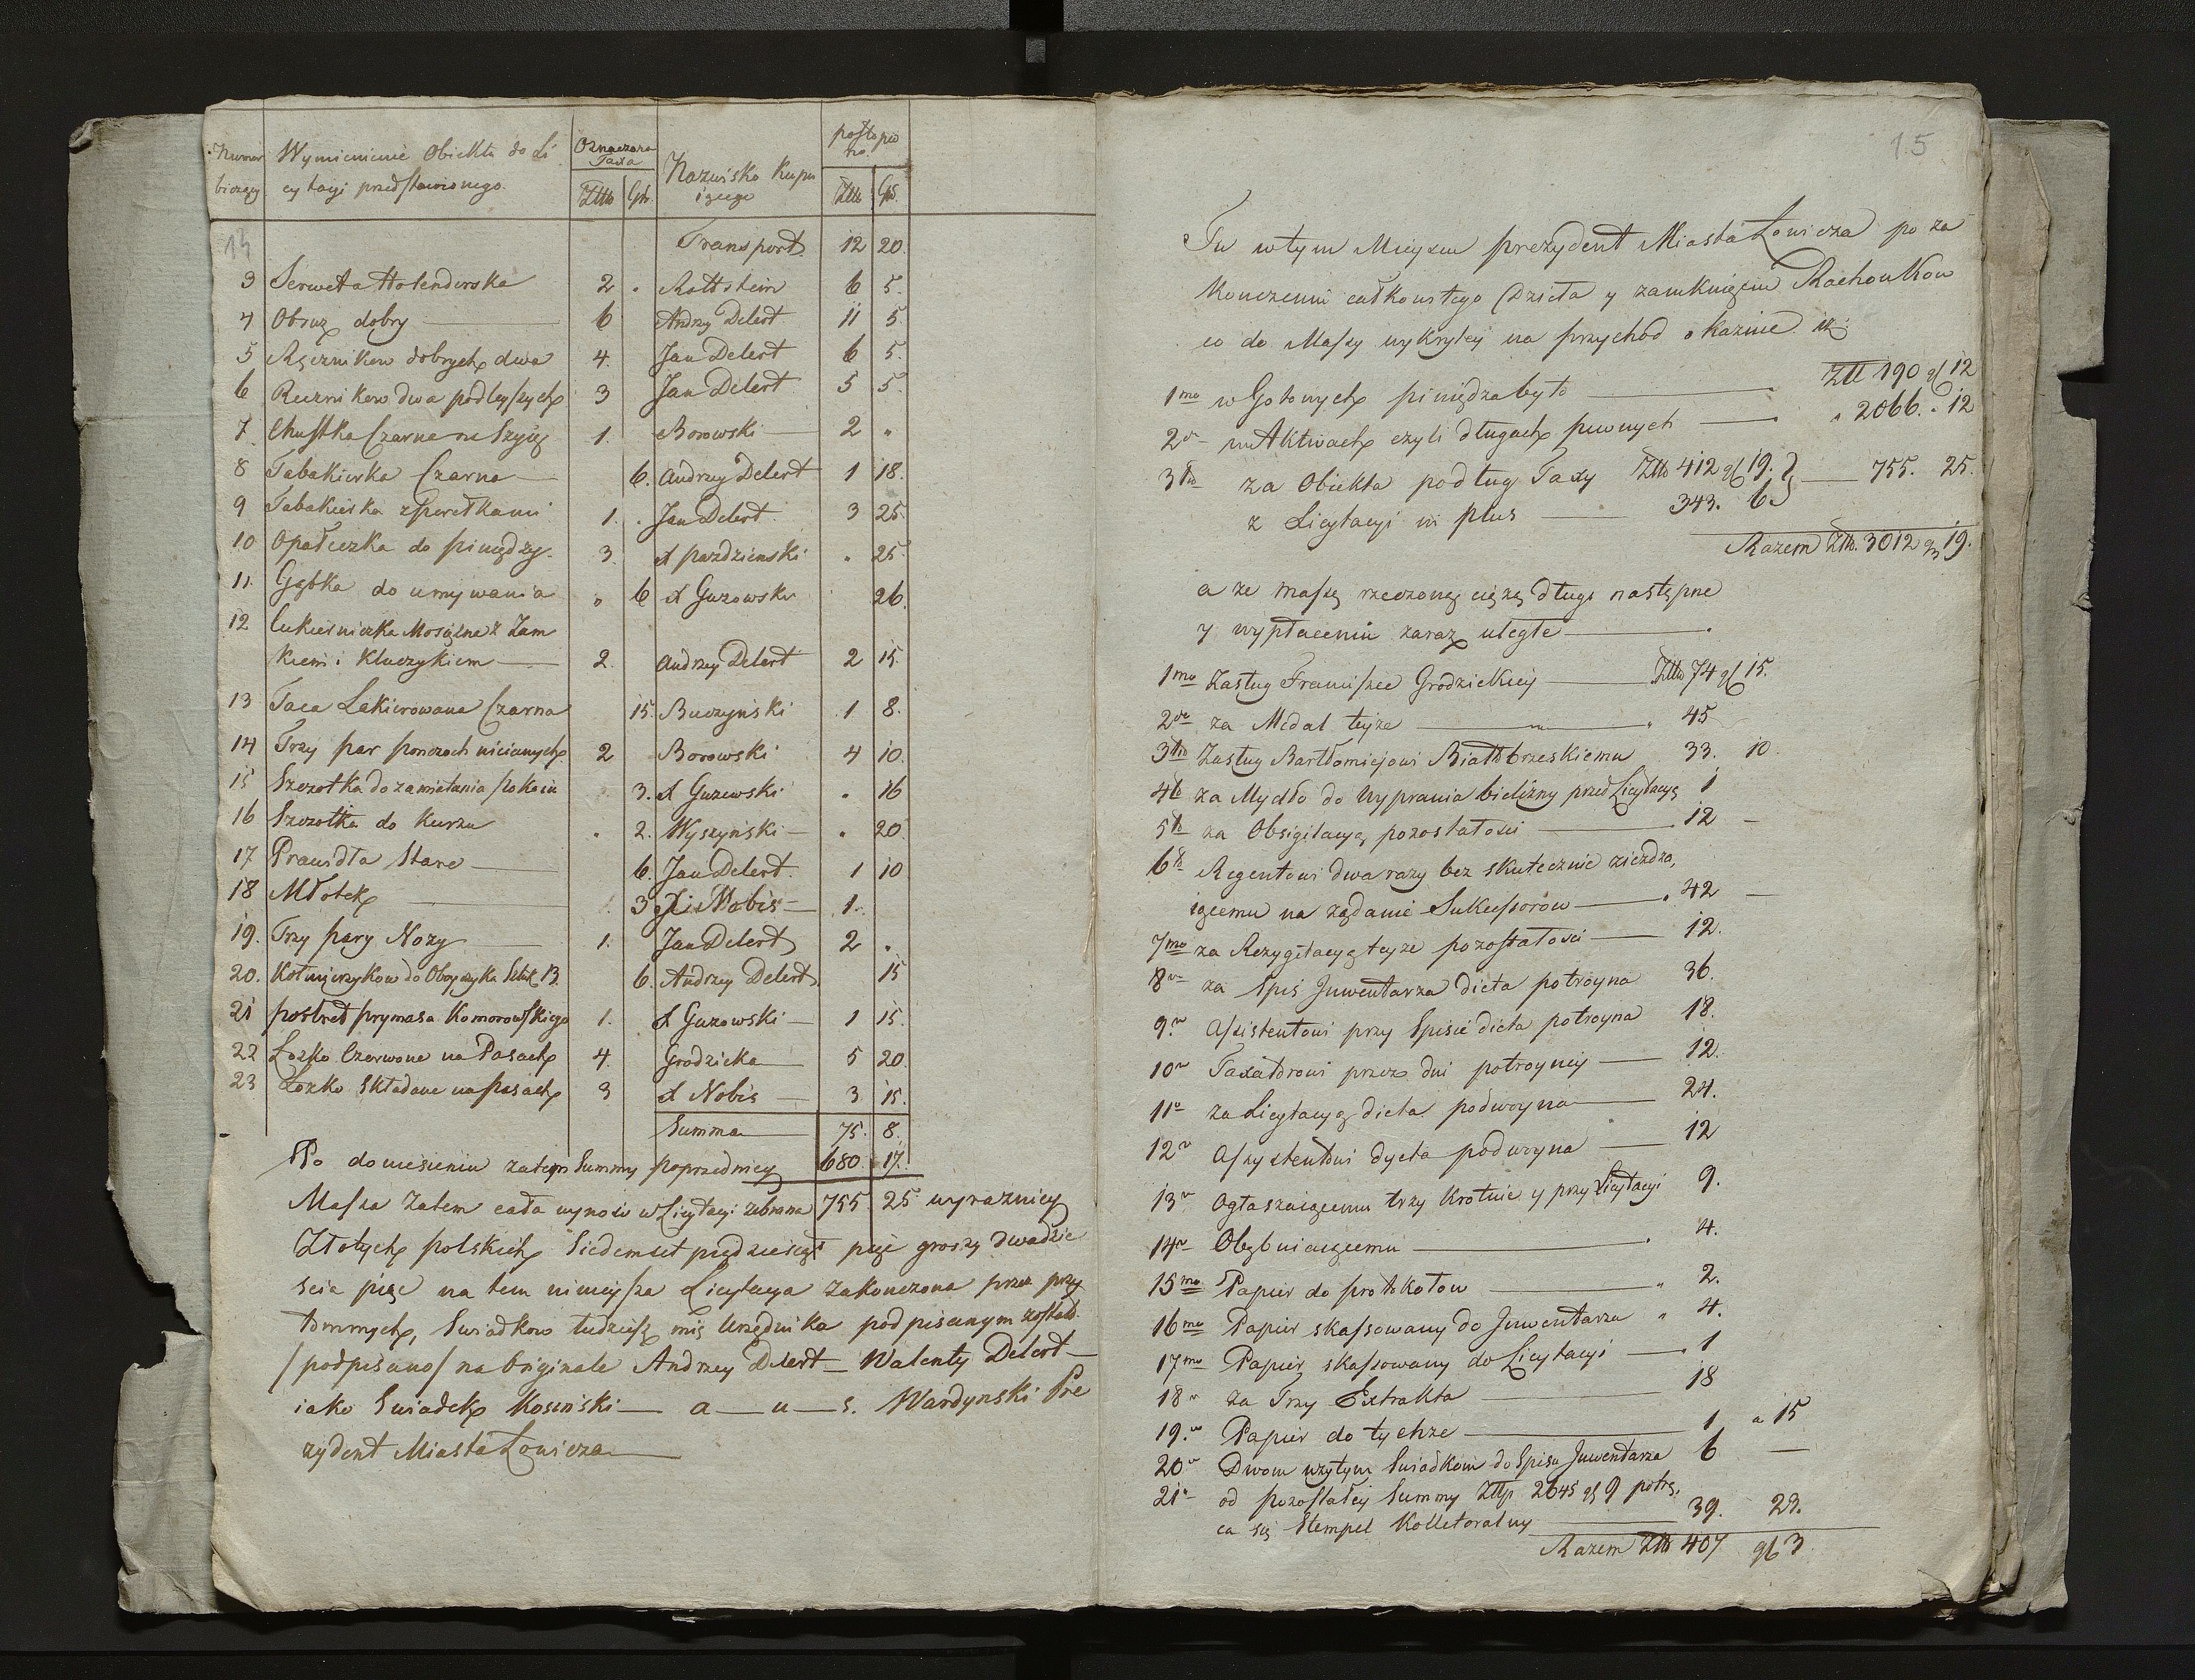 Numer Wymienienie Obiektu do Li Oznaczona Taxa Nazwisko Kupu postąpio no.
bieżący cytacyi przedstawionego. Złł Gr. iącego Złł Gr.
14 Transport 12 20.
3 Serweta Holenderska 2 . Rottstein 6 5.
4 Obruz dobry 6 Andrzy Delert 11 5
5 Ręcznikow dobrych dwa 4. Jan Delert 6 5.
6 Ręcznikow dwa podleyszych 3 Jan Delert 5 5.
7 Chustka Czarna na Szyię 1. Borowski 2 "
8 Tabakierka Czarna 6. Andrzey Delert 1 18.
9 Tabakierka z perełkami 1. . Jan Delert 3 25.
10 Opałeczka do pieniędzy 3. X pazdzierski . 25.
11 Gąbka do umywania " 6 X Guzowski 26.
12 Cukierniczka Mosiężna z Zam
kiem i Kluczykiem 2. Andrzey Delert 2 15.
13 Taca Lakierowana Czarna 15. Buczynski 1 8.
14 Trzy par ponczoch nicianych 2 Borowski 4 10.
15 Szczotka do zamietania pokoiu 3. X Guzowski . 16
16 Szczotka do Kurzu . 2. Wyszynski . 20
17 Prawidła Stare 6. Jan Delert. 1 10
18 Młotek 3 X Nobis 1.
19. Trzy pary Nozy 1. Jan Delert 2 .
20. Kołnierzykow do Obojczyka Sztuk 13. 6. Andrzey Delert 15
21 portret prymasa Komorowskiego 1. X Guzowski 1 15.
22 Łozko Czerwone na Pasach 4. Grodzicka 5 20.
23 Łozko Składane na pasach 3 X Nobis 3 15.
Summa 75. 8.
Po doniesieniu zatem Summy poprzedniey 680. 17.
Massa Zatem cała wynosi w Licytacyi zebrana 755. 25 wyrazniey
Złotych polskich Siedemset pięcdziesiąt pięc groszy dwadzie
scia pięc na tem ninieysza Licytacya Zakonczona przez przy
tomnych, Swiadkow tudziesz mię Urzędnika podpisanym został.
/podpisano/ na Originale Andrzey Delert — Walenty Delert —
iako Swiadek Kosinski — a — u — s. Wardynski Pre
zydent Miasta Łowicza
15
Tu w tym Mieyscu prezydent Miasta Łowicza po za
konczeniu całkowitego Dzieła y zamknięciu Rachunkow
co do Massy wykrytey na przychod okazuie iż
1mo w Gotowych pieniędzach było Złł 190 gr 12
2do w Aktiwach czyli długach pewnych " 2066. " 12
3tio za Obiekta podług Taxy Złł 412 gr 19. } 755. 25.
z Licytacyi in plus 343. 6
Razem Złł. 3012 gr 19.
a ze massę rzeczoną ciężą długi następne
y wypłaceniu zaraz uległe
1mo Zasług Franciszce Grodzickiey Złł 74 gr 15.
2do za Medal teyze " 45
3tio Zasług Bartłomiejowi Białłobrzeskiemu 33. 10.
4to za Mydło do Wyprania bielizny przed Licytacyą 1
5to za Obsigilacyą pozostałosci 12 —
6to Regentowi dwa razy bez skutecznie ziezdza,
iącemu na ządanie Sukcessorow 42 —
7mo za Rezygilacyą teyze pozostałosci 12.
8vo za Spis Inwentarza dieta potroyna 36.
9no Assistentowi przy Spisie dieta potroyna 18.
10o Taxatorowi przez dni potroyney 12.
11o za Licytacyą dieta podwoyna 24.
12o Assystentowi dyeta podwoyna 12
13o Ogłaszaiącemu trzy krotnie y przy Licytacyi 9.
14o Obębniaiącemu 4.
15mo Papier do protokołow " 2.
16mo Papier skassowany do Inwentarza " 4.
17mo Papier skassowany do Licytacyi 1
18o za Trzy Extrakta 18
19.o Papier do tychze 1 " 15
20o Dwom wzytym Swiadkom do Spisu Inwentarza 6 —
21o od pozostałey Summy Złłp 2645 gr 9 potrą,
ca się Stempel Kolletoralny 39. 23.
Razem Złł 407 gr 3